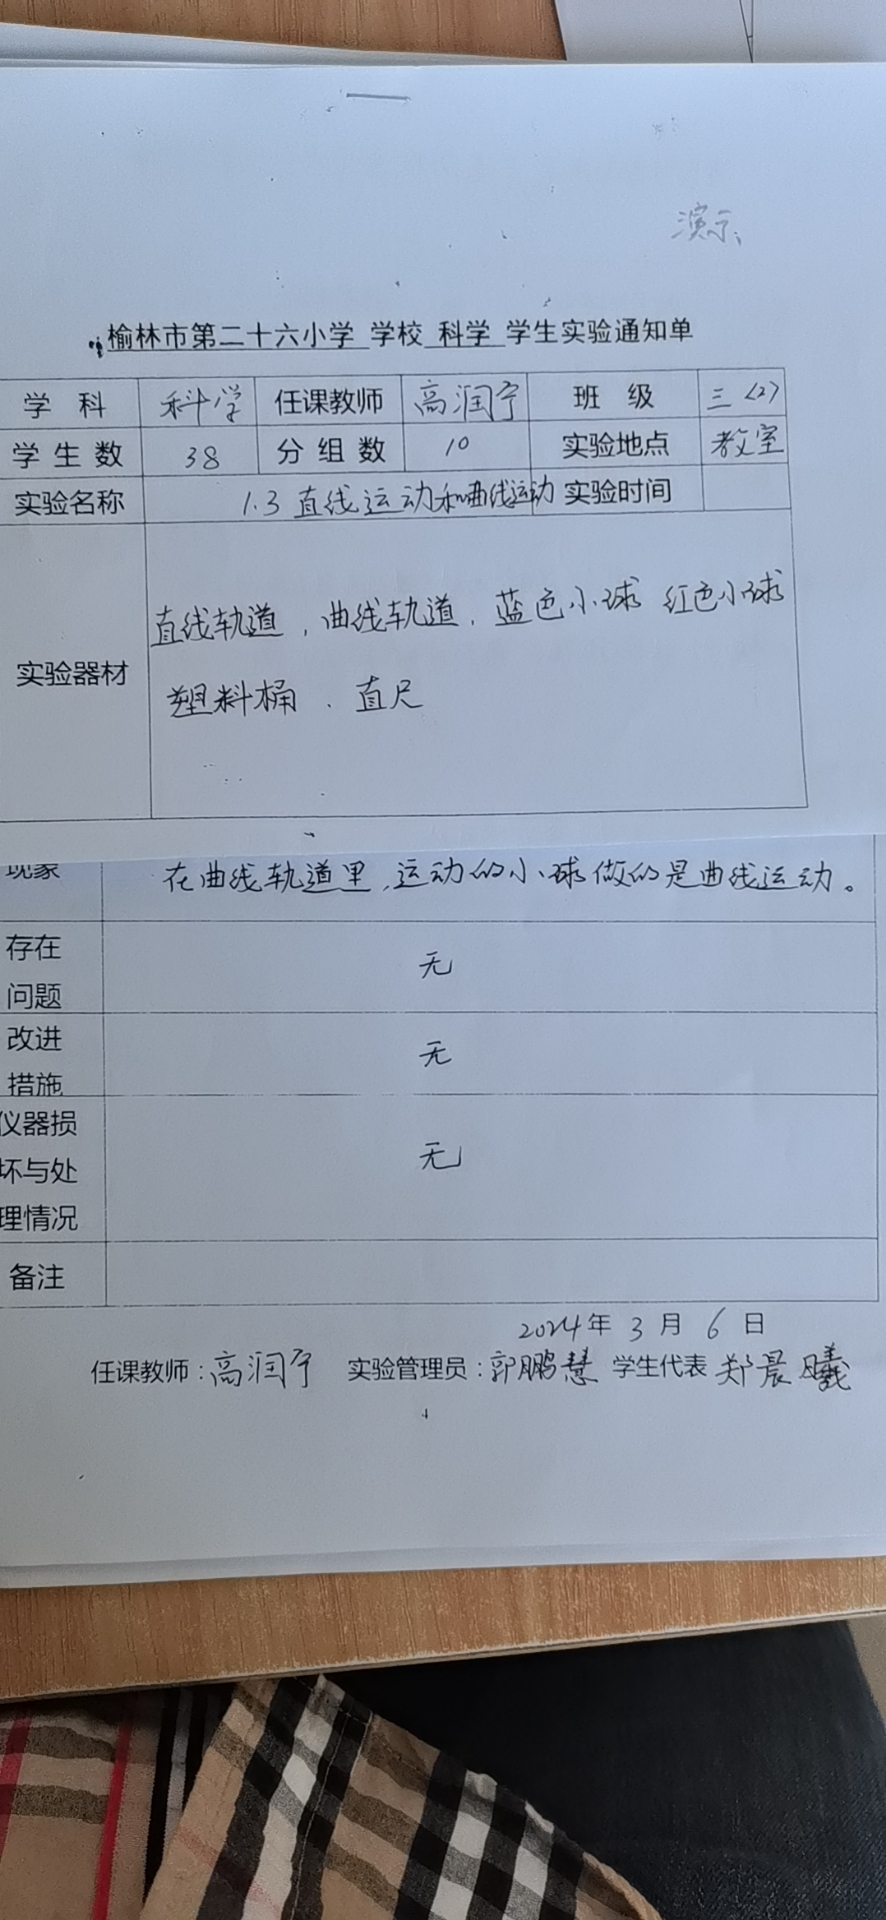 演示
榆林市第二十六小学 学校 科学 学生实验通知单
学 科 科学 任课教师 高润宁 班 级 三（2）
学 生 数 38 分 组 数 10 实验地点 教室
实验名称 1.3 直线运动和曲线运动 实验时间
实验器材
直线轨道，曲线轨道，蓝色小球 红色小球
塑料桶、直尺
现象 在曲线轨道里，运动的小球做的是曲线运动。
存在
问题
无
改进
措施
无
仪器损
坏与处
理情况
无
备注
2024年 3 月 6 日
任课教师：高润宁 实验管理员：郭鹏慧 学生代表 郑晨曦